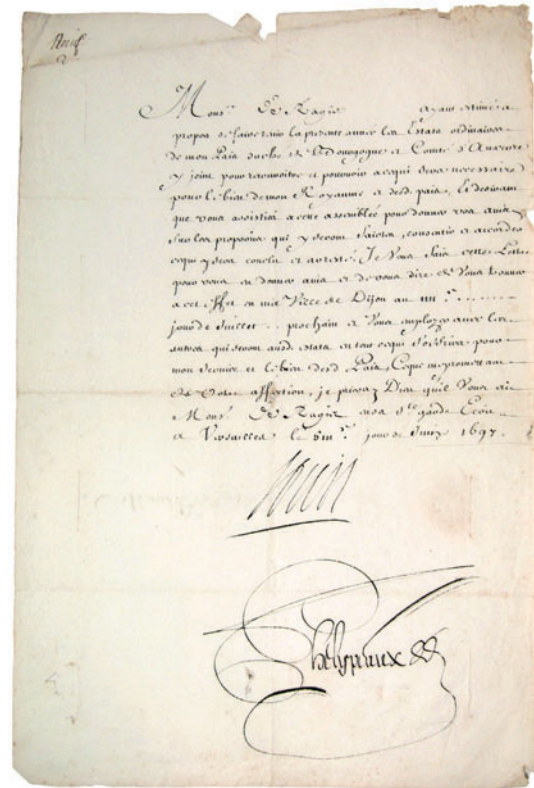 Mons.r De Ragie ayant estimé a
propos de faire tenir la presente année les Estats ordinaires
de mon Pais duché de Bourgogne et Comté d'Auxerre
y joint pour reconnoitre et pourvoir a cequi sera necessaire
pour le bien de mon Royaume et desd. pais, Et desirant
que vous assistiez a cette assemblée pour donner vos avis
sur les proposions qui y seront faictes, consentir et accorder
cequi y sera conclu et arresté. Je vous fais cette Lettre
pour vous en donner avis et de vous dire de vous trouver
a cet effet en ma Ville de Dijon au IIII.e
jour de Juillet prochain et vous employer avec les
autres qui seront ausd. estats en tout cequi s'offrira pour
mon service et le bien desd. Pais, Ceque me promettant
de Votre affection, je prieray Dieu qu'il Vous ait
Mons.r De Ragie en sa s.te garde Ecrit
a Versailles le jour de Juin 1697.
Louis
Phelypeaux